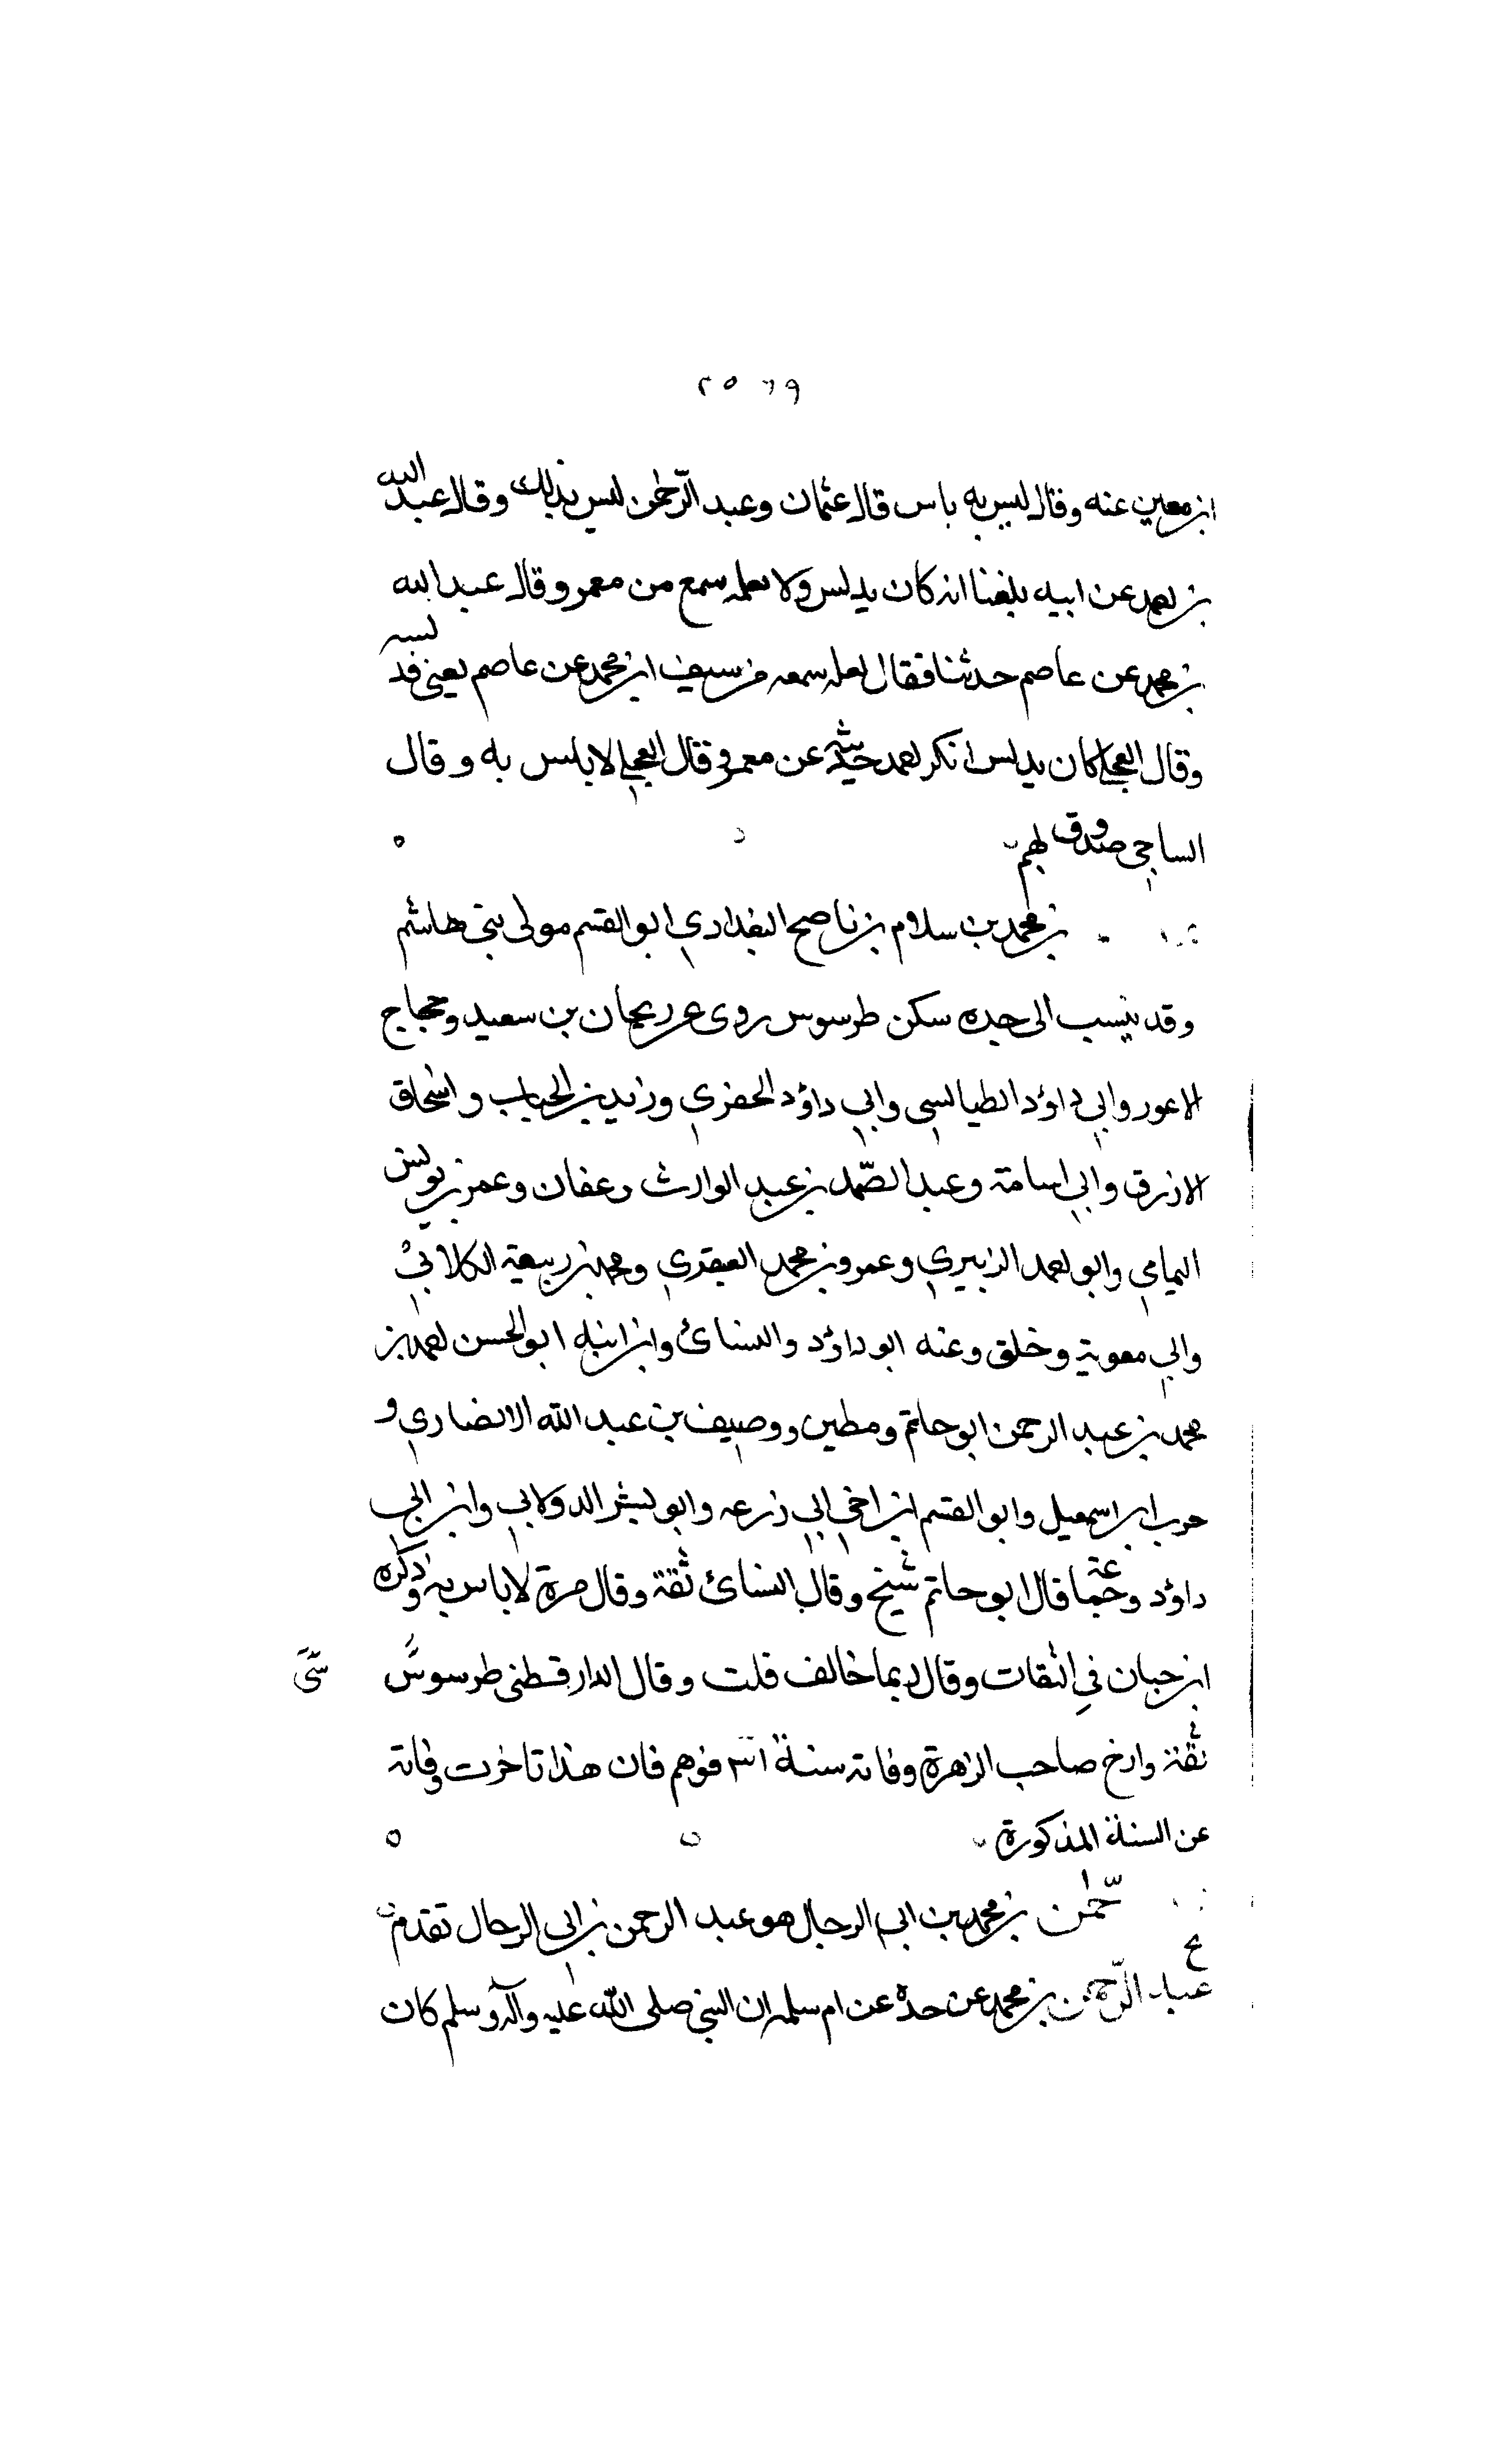 ٢٥٦٩
ابن معين عنه وقال ليس به باس قال عثمان وعبد الرّحمٰن ليس بذلك وقال عبد الله
بن احمد عن ابيه بلغنا انه كان يدلس ولا نعلمه سمع من معمر وقال عبد الله
بن محمد عن عاصم حدثنا فقال لعله سمعه من سيف ابن محمد عن عاصم يعنى فدلسه
وقال العجلي كان يدلس انكر احمد حديثه عن معمر وقال العجلي لا باس به وقال
الساجي صدوق يهم
بن محمد بن سلام بن ناصح البغدادي ابو القسم مولى بني هاشم
وقد ينسب الى جده سكن طرسوس روى عن ريحان بن سعيد وحجاج
الاعور وابي داؤد الطيالسي وابي داؤد الحفري وزيد بن الحباب واسحاق
الازرق وابي اسامة وعبد الصّمد بن عبد الوارث وعفان وعمر بن يونس
اليمامي وابو احمد الزبيري وعمرو بن محمد العنقزي ومحمد بن ربيعة الكلابي
وابي معوية وخلق وعنه ابو داؤد والنسائ وابن ابنه ابو الحسن احمد بن
محمد بن عبد الرحمن ابو حاتم ومطين ووصيف بن عبد الله الانصاري و
حرب ابن اسمعيل وابو القسم ابن اخي ابي زرعه وابو بشر الدولابي وابن ابي
داؤد وجماعة قال ابو حاتم شيخ وقال النسائ ثقة وقال مرة لا باس به وذكره
ابن حبان في الثقات وقال ربما خالف قلت وقال الدارقطنى طرسوسي
ثقة وارخ صاحب الزهرة وفاته سنة ٢٣١ فوهم فان هذا تاخرت وفاته
عن السنة المذكورة
بن محمد بن ابي الرجال هو عبد الرحمن بن ابي الرجال تقدم
عبد الرّحمن بن محمد عن جده عن ام سلمه ان النبي صلى الله عليه وآله وسلم كان